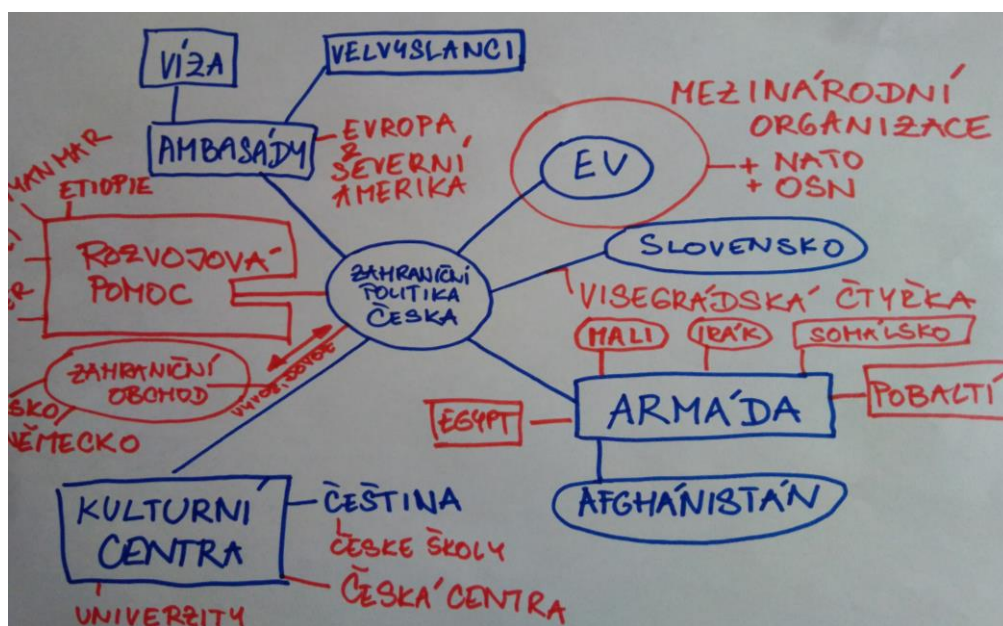 VÍZA
VELVYSLANCI
AMBASÁDY
EVROPA
SEVERNÍ
AMERIKA
MEZINÁRODNÍ
ORGANIZACE
+ NATO
+ OSN
EU
ETIOPIE
ROZVOJOVÁ
POMOC
ZAHRANIČNÍ
POLITIKA
ČESKA
SLOVENSKO
VISEGRÁDSKÁ ČTYŘKA
MALI
IRÁK
SOMÁLSKO
ZAHRANIČNÍ
OBCHOD
VÝVOZ, DOVOZ
NĚMECKO
EGYPT
ARMÁDA
POBALTÍ
AFGHÁNISTÁN
KULTURNÍ
CENTRA
ČEŠTINA
ČESKÉ ŠKOLY
ČESKÁ CENTRA
UNIVERZITY